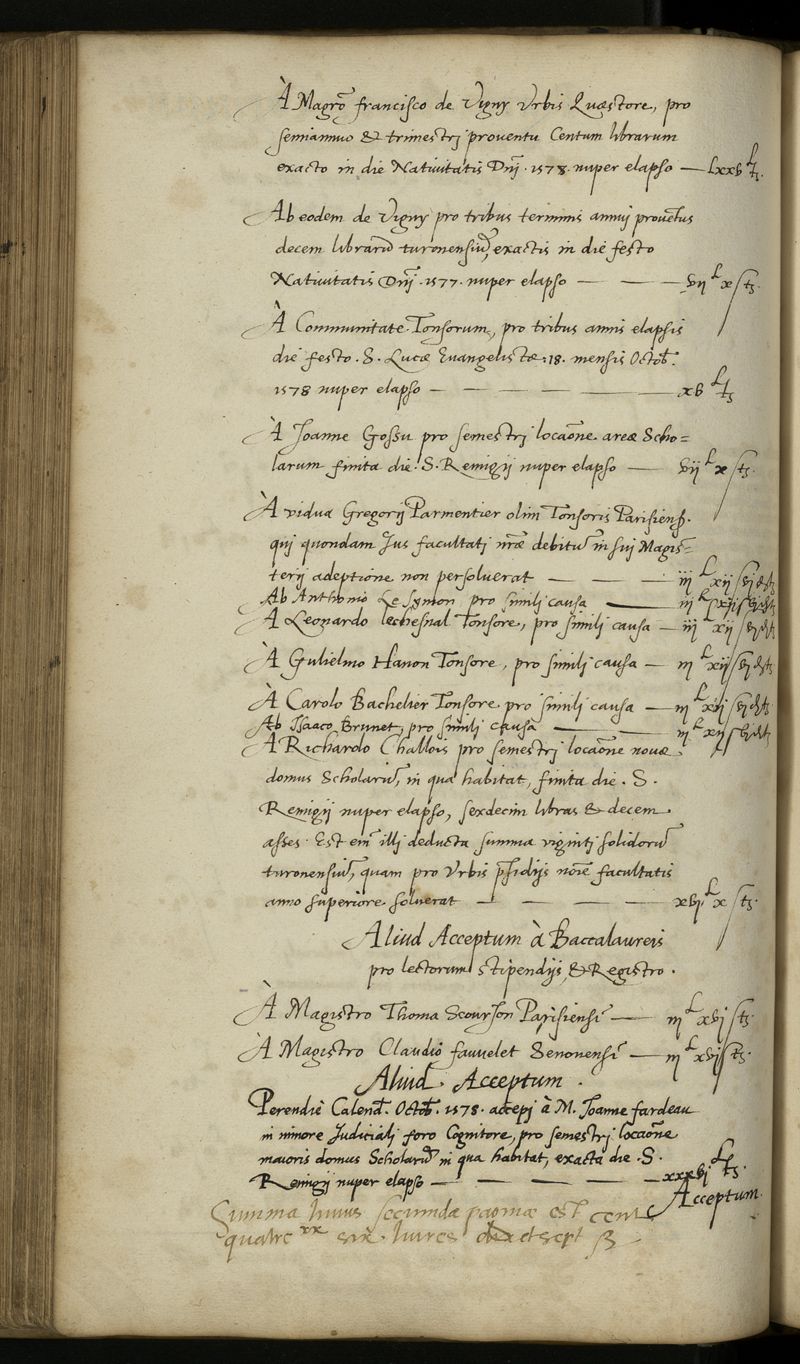 À Magrō francisco de Vigny Vrbis Quæstore, pro
semiannuo & trimestrj prouentu Centum librarum
exacto in die Natiuitatis Dnj · 1578 · nuper elapso — lxxb lt.
Ab eodem de Vigny pro tribus terminis annuj prouētus
decem librarū turonensiū, exactis in die festo
Natiuitatis Dnj · 1577 · nuper elapso — — — bij l x s ts.
À Communitate Tonsorum, pro tribus annis elapsis
die festo · S · Lucæ Euangelistæ · 18 · mensis Octob.
1578 nuper elapso — — — — — xb lts
À Joanne Gossu pro semestrj locaōne areæ Scho=
larum finita die · S · Remigij nuper elapso — bij l x s ts.
À vidua Gregorij Parmentier olim Tonsoris Parisiens.
quj quondam Jus facultatj nræ debitū in suj Magis=
terij adeptione non persoluerat — — — iij l xij s bj d ts
Ab Anthonio Le Symon pro similj causa — iij l xij s bj d ts
A Leonardo lechesnal Tonsore, pro similj causa — iij l xij s bj d ts
À Gulielmo Hanon Tonsore, pro similj causa — iij l xij s bj d ts
À Carolo Bachelier Tonsore pro similj causa — iij l xij s bj d ts
Ab Isaaco Brunet, pro similj causa — — iij l xij s bj d ts
À Richardo Challois pro semestrj locaōne nouæ
domus Scholarū, in qua habitat, finita die · S ·
Remigij nuper elapso, sexdecim libras & decem
asses · Est em̄ illj deducta summa vigintj solidorū
turonensiū, quam pro Vrbis psidijs noīe facultatis
anno superiore soluerat — — — — xbj l x s ts.
Aliud Acceptum à Baccalaureis
pro lectorum stipendijs, & Registro ·
À Magistro Thoma Scourjon Parisiensi — iij l xbj s ts.
À Magistro Claudio fauuelet Senonensi — iij l xbj s ts.
Aliud · Acceptum ·
Perendiè Calend. Octob. 1578 · accepj à M. Joanne fardeau
in minore Judicialj foro Cognitore, pro semestrj locaōne
maioris domus Scholarū in qua habitat, exacta die · S ·
Remigij nuper elapso — — — — — xxxbj lts.
Acceptum.
Summa huius secunda paginæ est cent
quatre xx six liures dixetsept ß